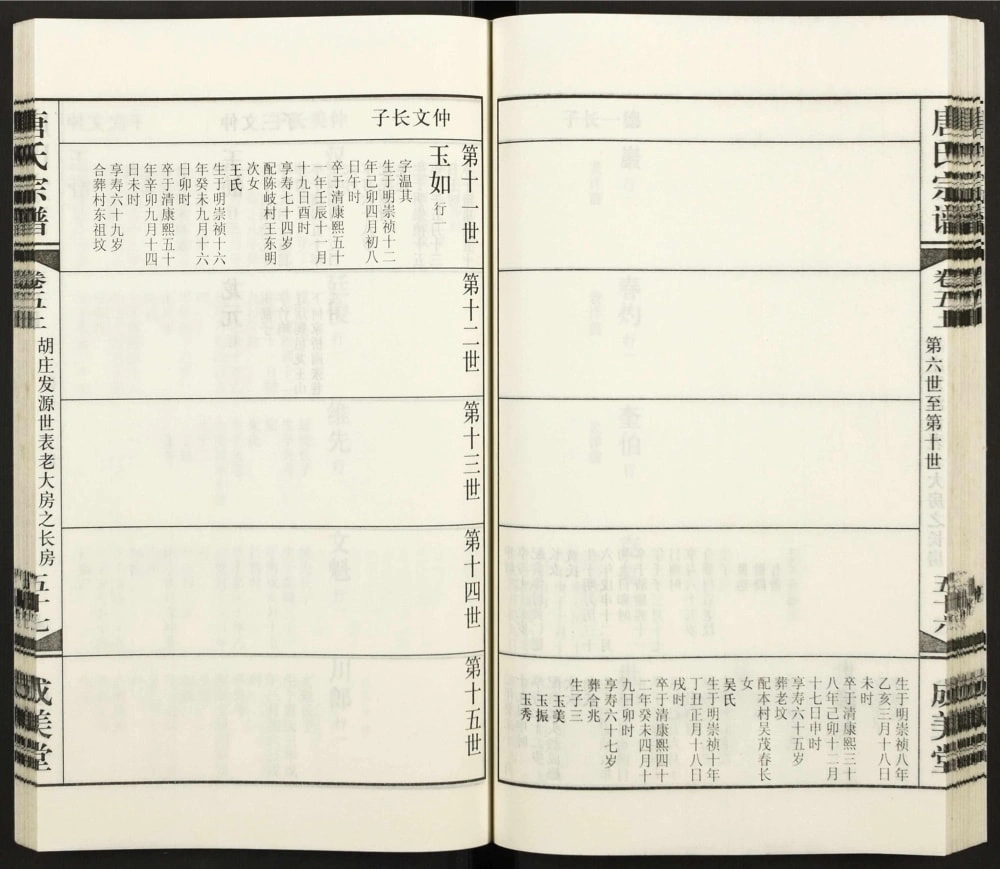 唐氏宗谱
卷五上
第六世至第十世
五十六
成美堂
生于明崇祯八年
乙亥三月十八日
未时
卒于清康熙三十
八年己卯十二月
十七日申时
享寿六十五岁
葬老坟
配本村吴茂春长
女
吴氏
生于明崇祯十年
丁丑正月十八日
戌时
卒于清康熙四十
二年癸未四月十
九日卯时
享寿六十七岁
葬合兆
生子三
玉美
玉振
玉秀
仲文长子
第十一世
玉如 行一
字温其
生于明崇祯十二
年己卯四月初八
日午时
卒于清康熙五十
一年壬辰十一月
十九日酉时
享寿七十四岁
配陈岐村王东明
次女
王氏
生于明崇祯十六
年癸未九月十六
日卯时
卒于清康熙五十
年辛卯九月十四
日未时
享寿六十九岁
合葬村东祖坟
第十二世
第十三世
第十四世
第十五世
唐氏宗谱
卷五上
胡庄发源世表老大房之长房
五十七
成美堂